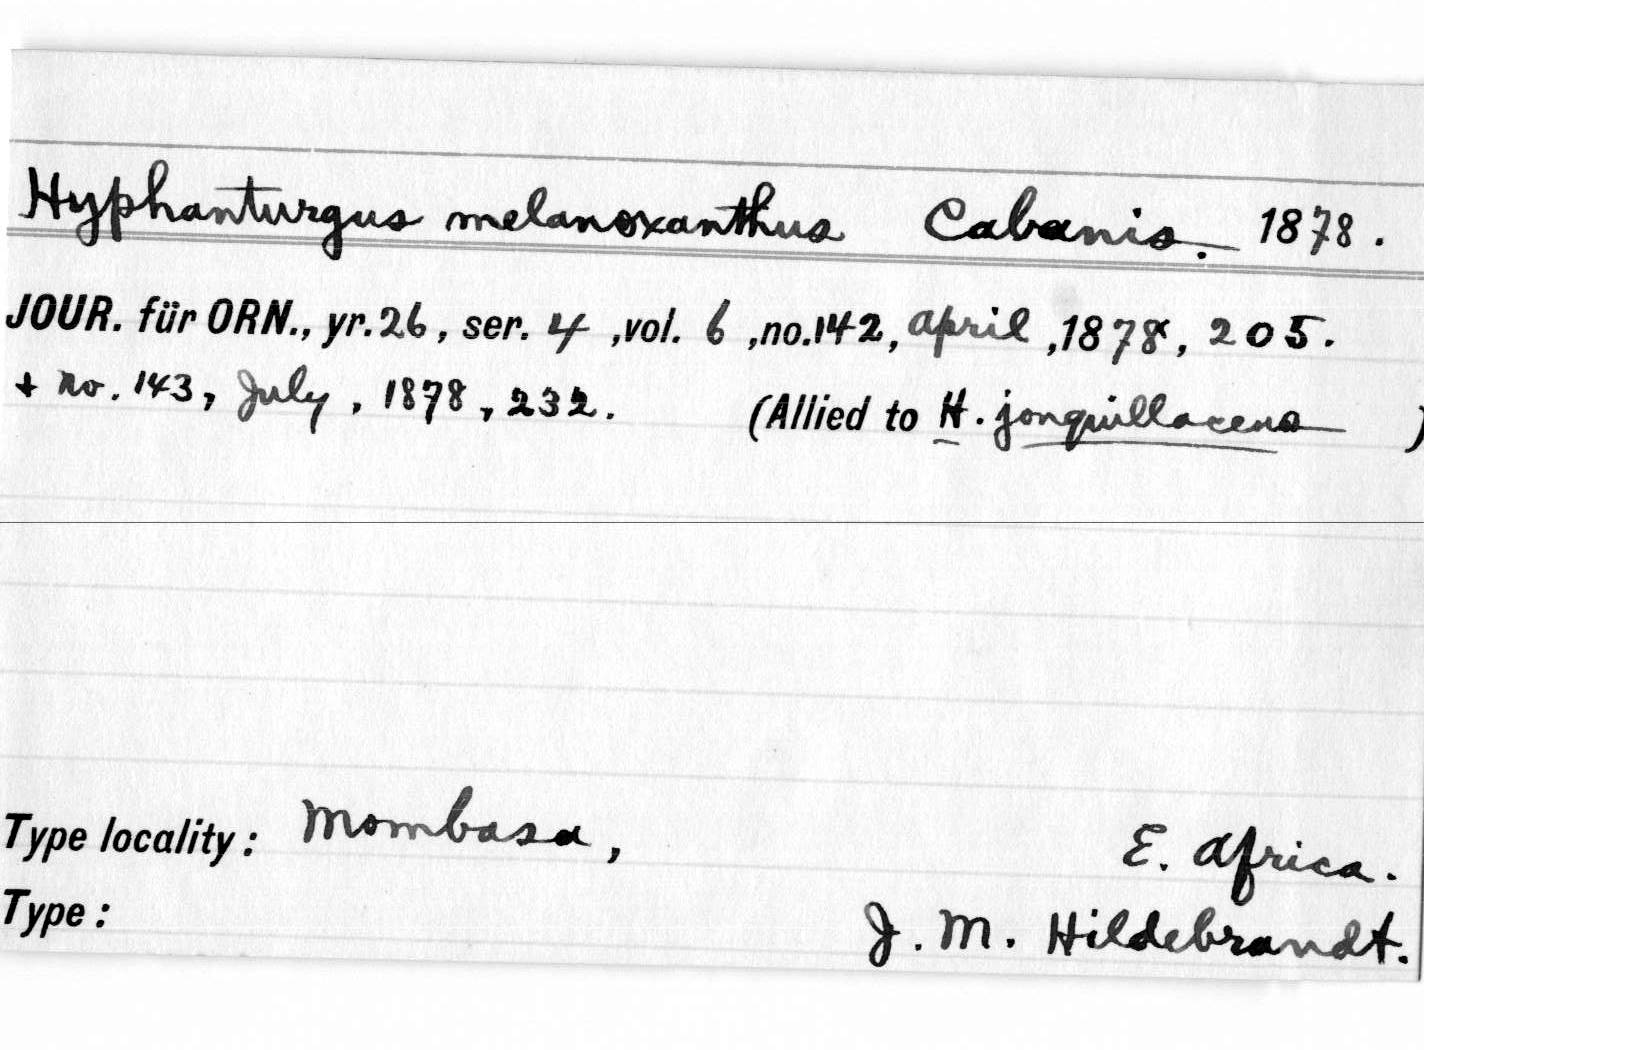 Hyphanturgus melanoxanthus Cabanis. 1878.
JOUR. für ORN., yr. 26, ser. 4, vol. 6, no. 142, April, 1878, 205.
+ no. 143, July, 1878, 232. (Allied to H. jonquillaceus )
Type locality: Mombasa, E. Africa.
Type: J. M. Hildebrandt.